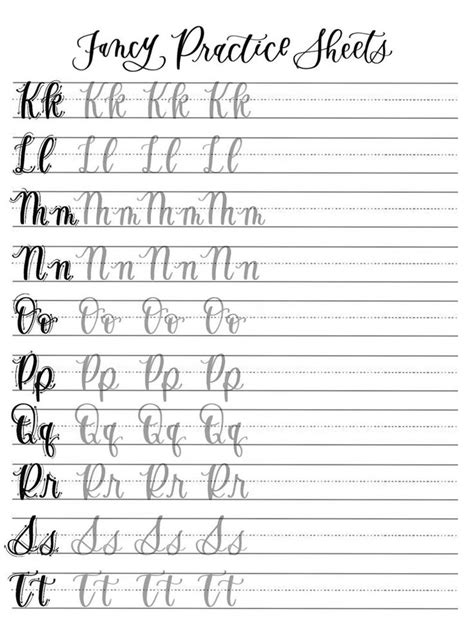 Fancy Practice Sheets
Kk Kk Kk Kk
Ll Ll Ll Ll
Mm Mm Mm Mm
Nn Nn Nn Nn
Oo Oo Oo Oo
Pp Pp Pp Pp
Qq Qq Qq Qq
Rr Rr Rr Rr
Ss Ss Ss Ss
Tt Tt Tt Tt